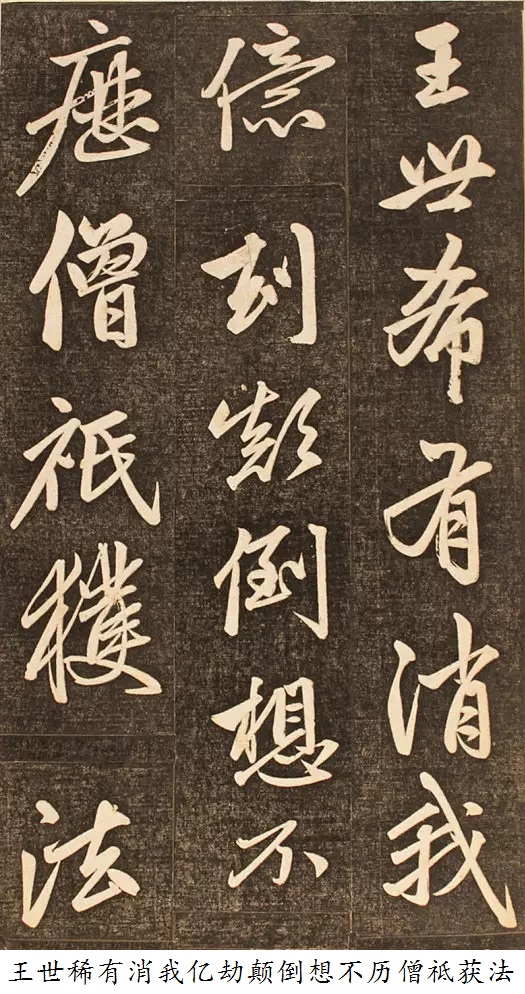 王世希有消我
億刧顛倒想不
歷僧祇獲法
王世稀有消我亿劫颠倒想不历僧祇获法